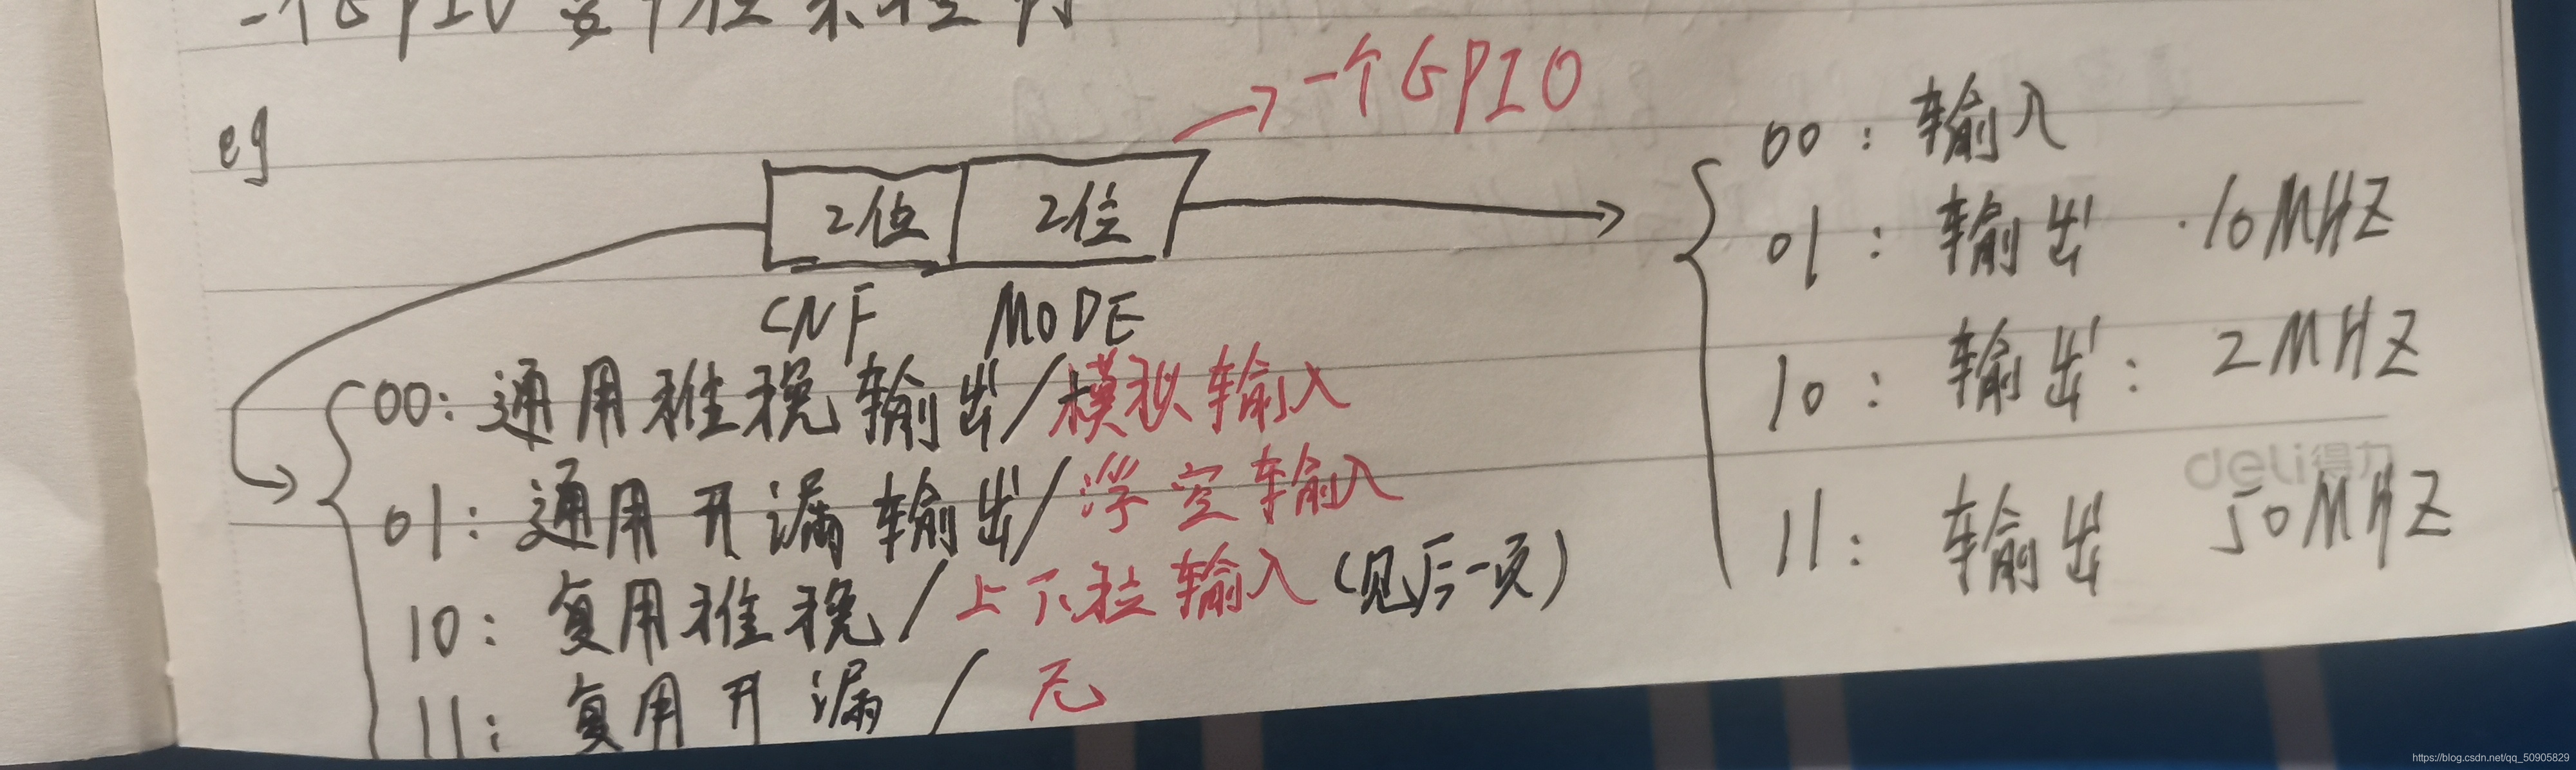 一个GPIO要4位来控制
eg
→一个GPIO
2位 2位
CNF MODE
00:通用推挽输出/模拟输入
01:通用开漏输出/浮空输入
10:复用推挽/上下拉输入(见后一页)
11:复用开漏/无
00:输入
01:输出 ·10MHZ
10:输出: 2MHZ
11:输出 50MHZ
deli得力
https://blog.csdn.net/qq_50905829